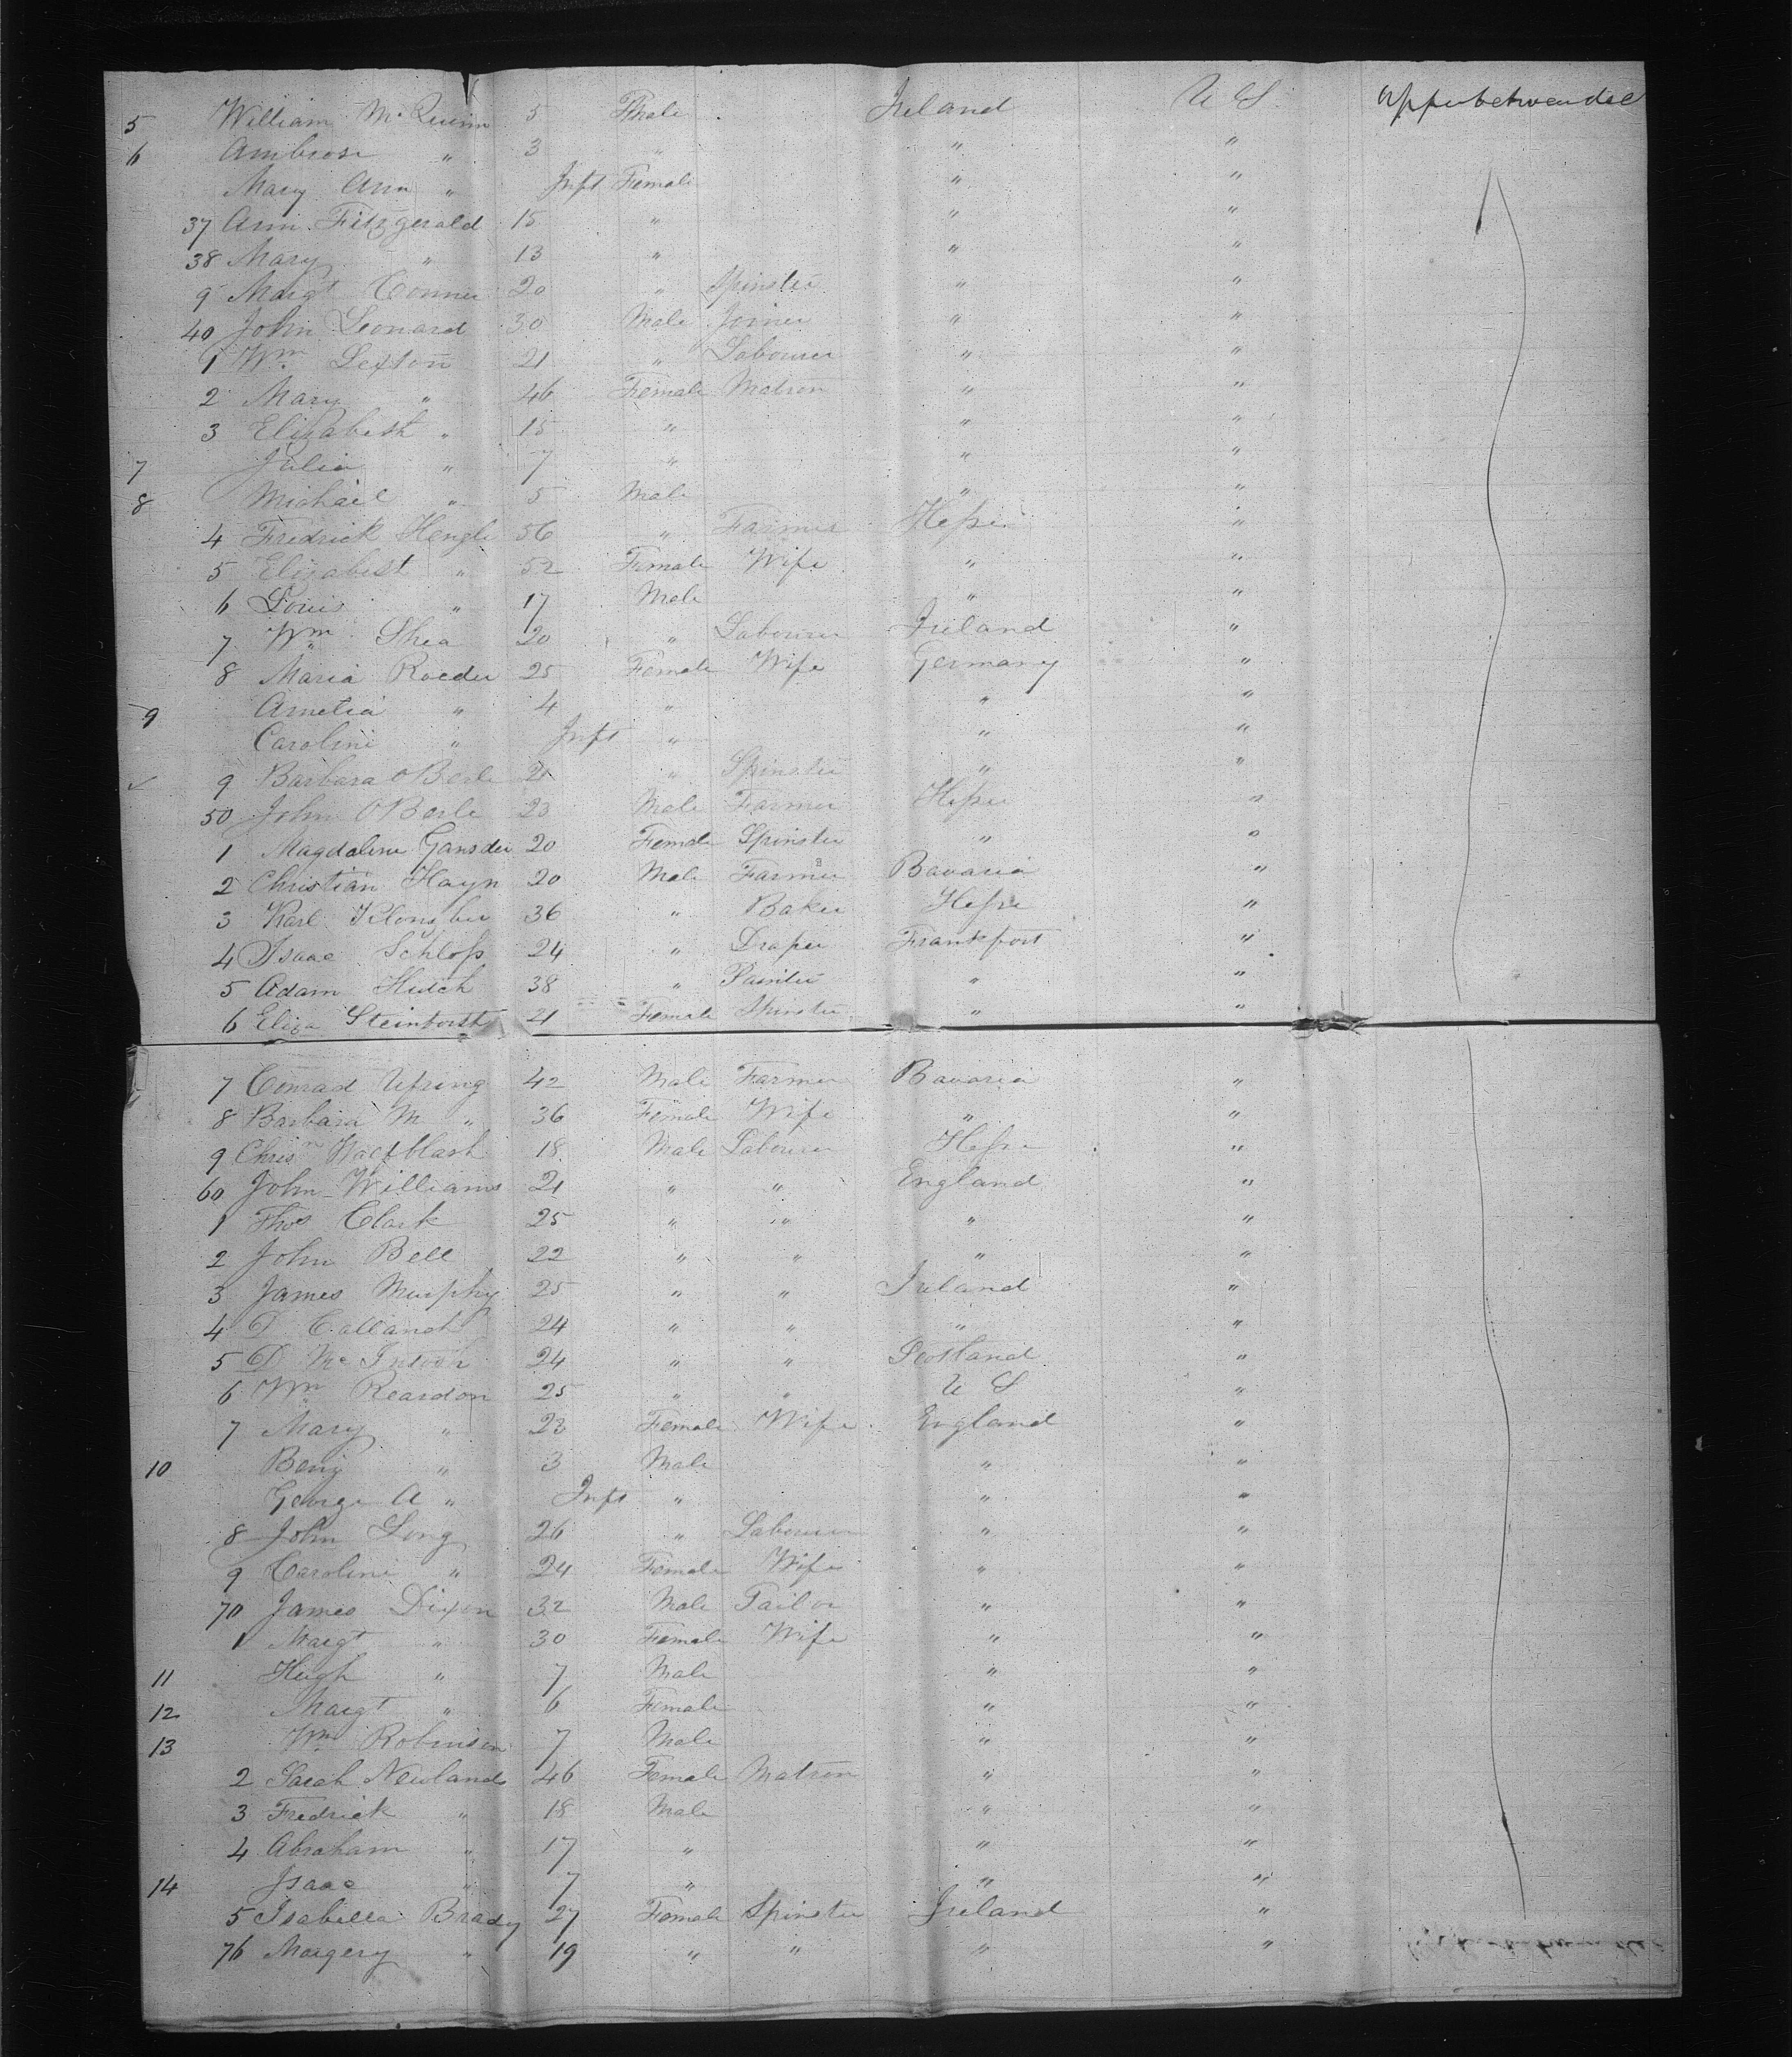 5 William McQuinn 5 Male Ireland U S. Upper between decks
6 Ambrose " 3 " " "
Mary Ann " Inft Female " "
37 Ann Fitzgerald 15 " " "
38 Mary " 13 " " "
9 Margt Conner 20 " Spinster " "
40 John Leonard 30 Male Joiner " "
1 Wm Sexton 21 " Labourer " "
2 Mary " 46 Female Matron " "
3 Elizabeth " 15 " " "
7 Julia " 7 " " "
8 Michael " 5 Male " "
4 Fredrick Hengle 56 " Farmer Hesse "
5 Elizabeth " 52 Female Wife " "
6 Louis " 17 Male " "
7 Wm Shea 20 " Labourer Ireland "
8 Maria Roeder 25 Female Wife Germany "
9 Amelia " 4 " " "
Caroline " Inft " " "
9 Barbara OBerle 21 " Spinster " "
50 John OBerle 23 Male Farmer Hesse "
1 Magdalene Gansder 20 Female Spinster " "
2 Christian Hayn 20 Male Farmer Bavaria "
3 Karl 36 " Baker Hesse "
4 Isaac Schloss 24 " Draper Frankfort "
5 Adam Hutch 38 " Painter " "
6 Eliza 21 Female Spinster " "
7 Conrad 42 Male Farmer Bavaria "
8 Barbara M " 36 Female Wife " "
9 Chrisn 18 Male Labourer Hesse "
60 John Williams 21 " " England "
1 Thos Clark 25 " " " "
2 John Bell 22 " " " "
3 James Murphy 25 " " Ireland "
4 D 24 " " " "
5 D McIntosh 24 " " Scotland "
6 Wm Reardon 25 " " U S "
7 Mary " 23 Female Wife England "
10 Benj " 3 Male " "
George A " Inft " " "
8 John Long 26 " Labourer " "
9 Caroline " 24 Female Wife " "
70 James Dixon 32 Male Tailor " "
1 Margt " 30 Female Wife " "
11 Hugh " 7 Male " "
12 Margt " 6 Female " "
13 Wm Robinson 7 Male " "
2 Sarah Newlands 46 Female Matron " "
3 Fredrick " 18 Male " "
4 Abraham " 17 " " "
14 Isaac " 7 " " "
5 Isabella Brady 27 Female Spinster Ireland "
76 Margery " 19 " " " "